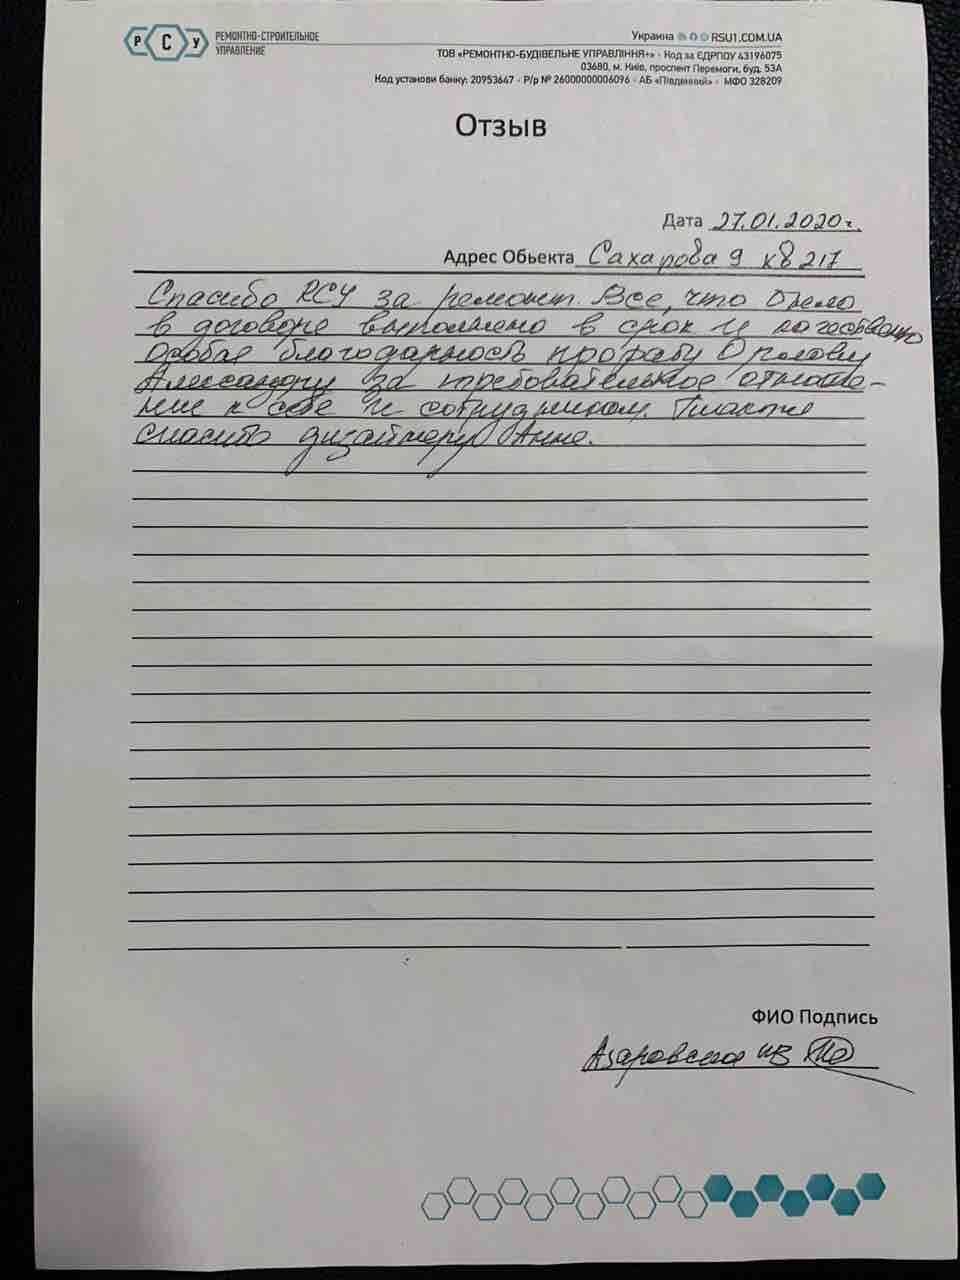 Р С У РЕМОНТНО-СТРОИТЕЛЬНОЕ УПРАВЛЕНИЕ
Украина RSU1.COM.UA
ТОВ «РЕМОНТНО-БУДІВЕЛЬНЕ УПРАВЛІННЯ+» · Код за ЄДРПОУ 43196075
03680, м. Київ, проспект Перемоги, буд. 53А
Код установи банку: 20953647 · Р/р № 26000000006096 · АБ «Південний» · МФО 328209
Отзыв
Дата 27.01.2020 г.
Адрес Обьекта Сахарова 9 кв 217
Спасибо RСУ за ремонт. Все, что было
в договоре выполнено в срок и качественно
Особая благодарность прорабу Орлову
Александру за требовательное отноше-
ние к себе и сотрудникам. Также
спасибо дизайнеру Анне.
ФИО Подпись
Азаровская ИВ